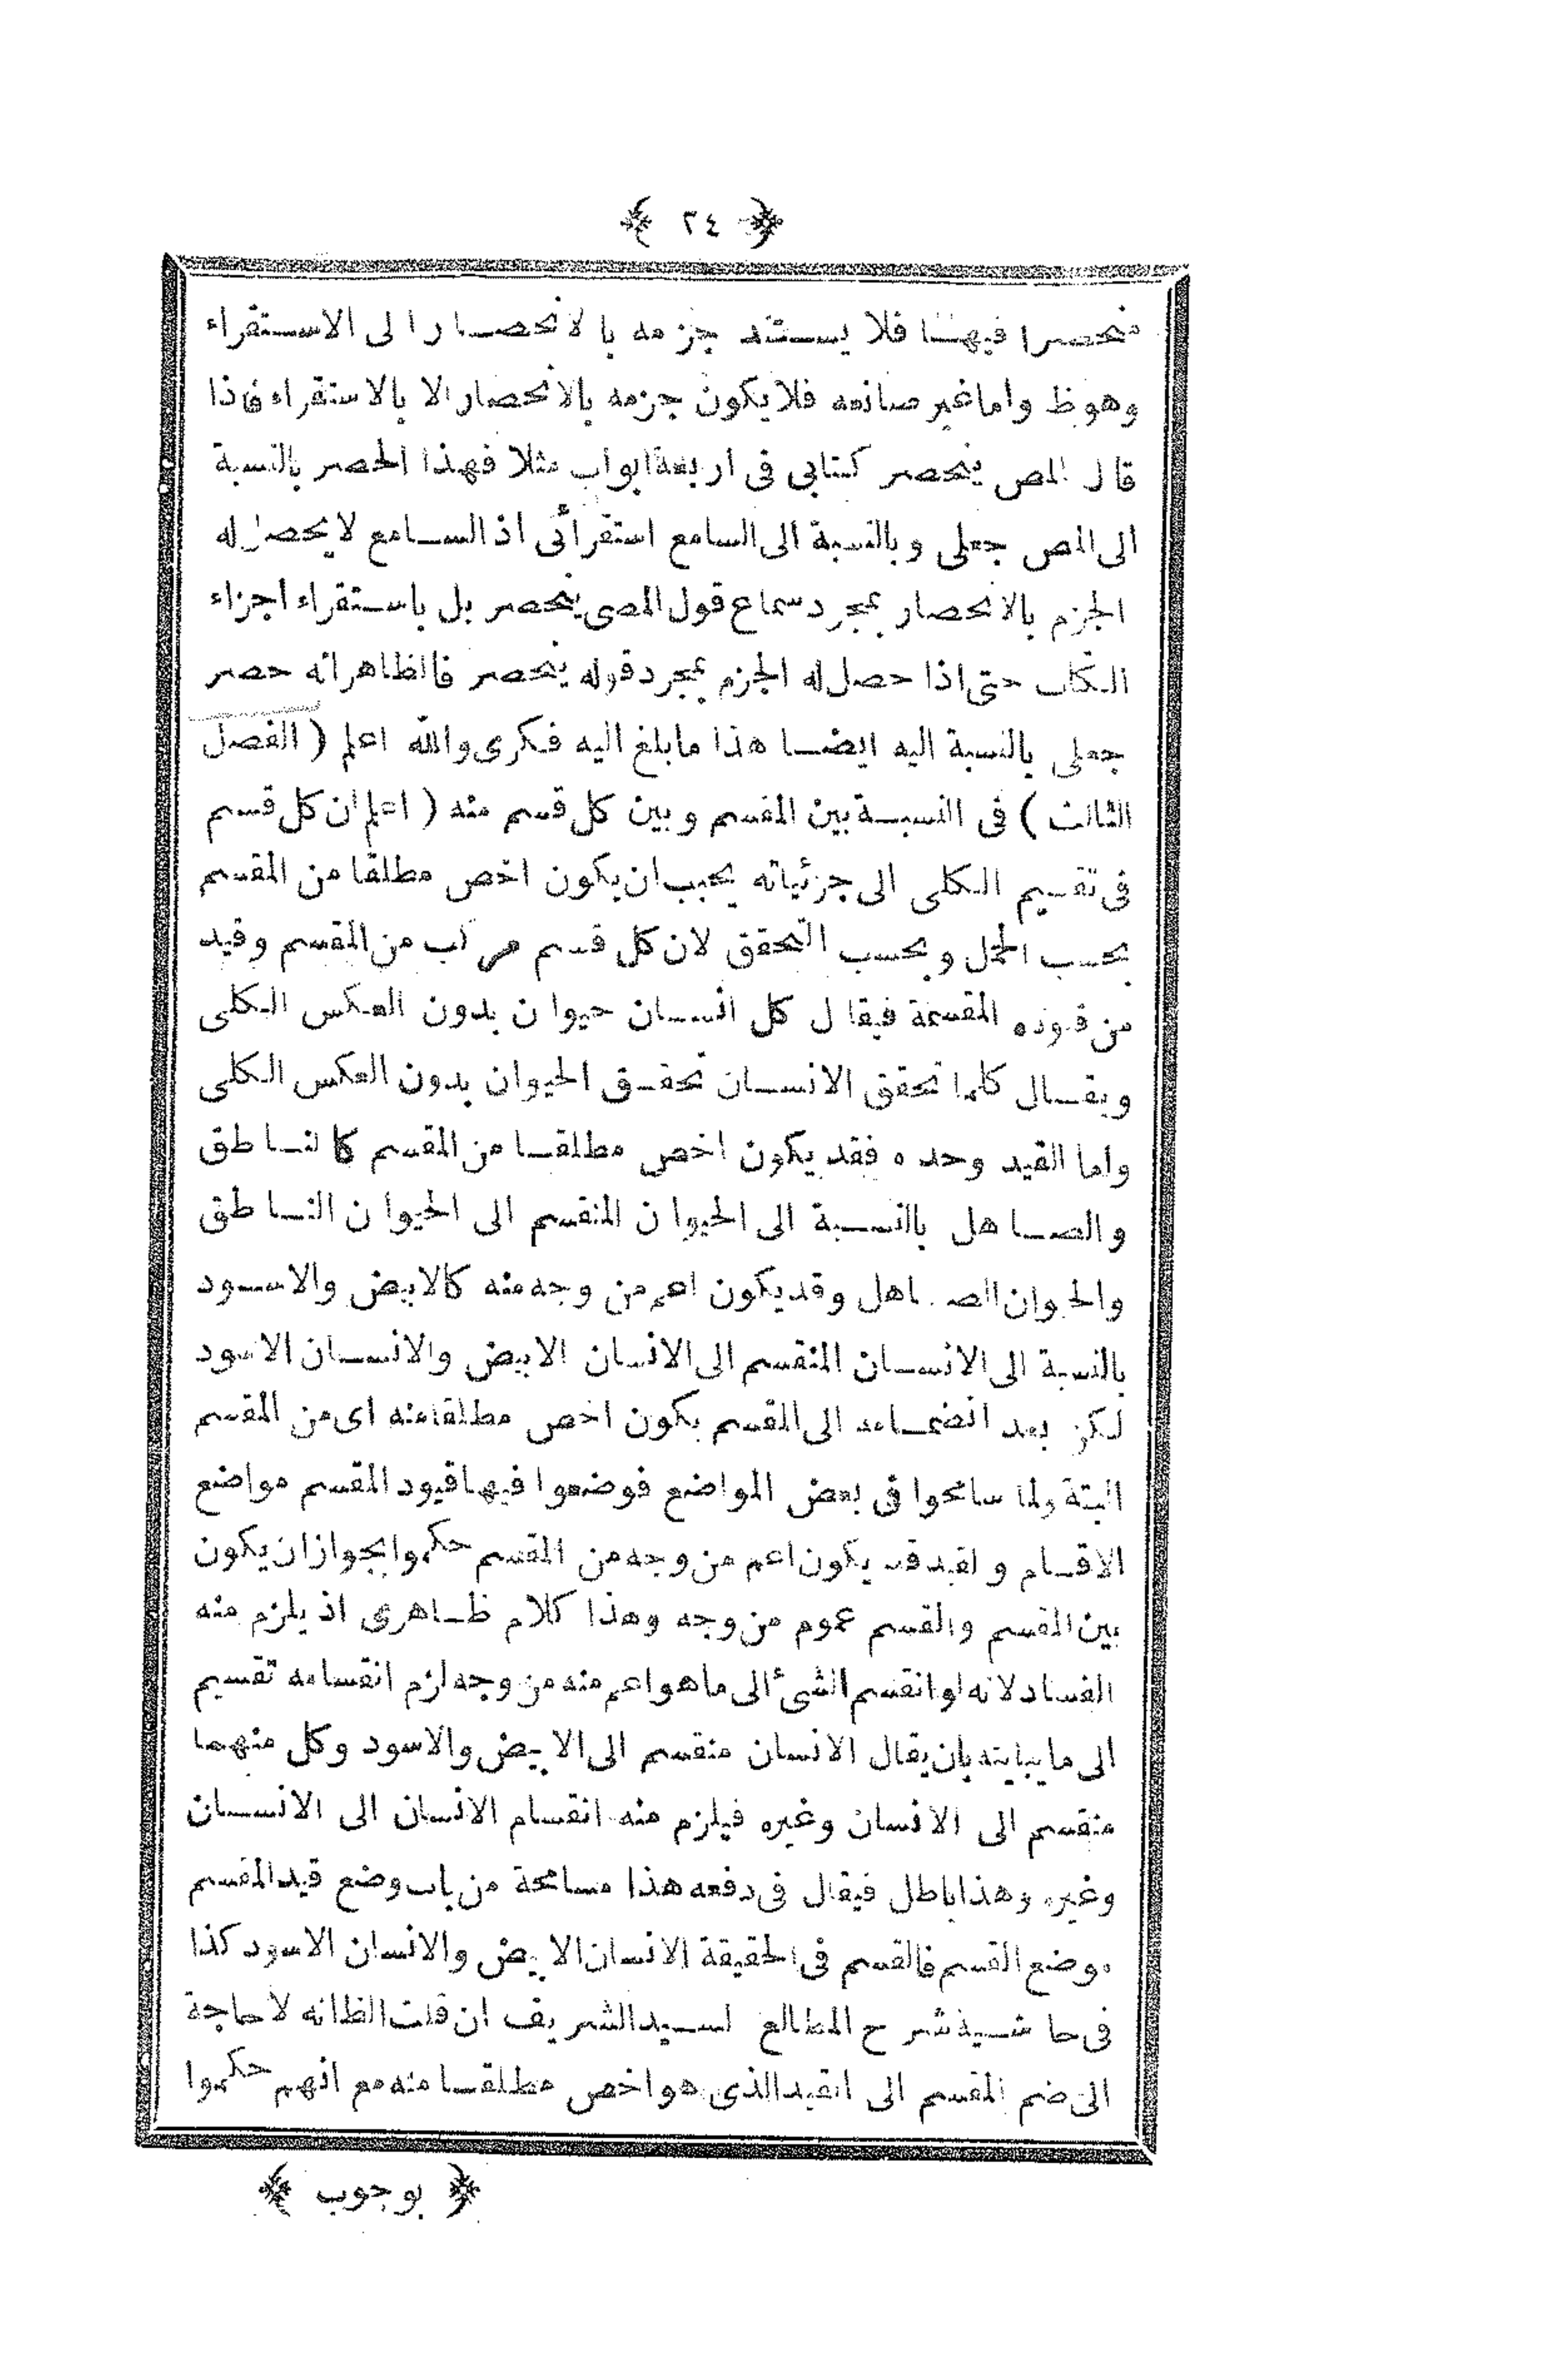 ﴿ ٢٤ ﴾
منحصرا فيهنا فلا يستند جزمه بالانحصار الى الاستقراء
وهوظ واما غير صانعه فلا يكون جزمه بالانحصار الا بالاستقراء فاذا
قال المص ينحصر كتابى فى اربعة ابواب مثلا فهذا الحصر بالنسبة
الى المص جعلى وبالنسبة الى السامع استقرائى اذ السامع لا يحصل له
الجزم بالانحصار بمجرد سماع قول المص ينحصر بل باستقراء اجزاء
الكتاب حتى اذا حصل له الجزم بمجرد قوله ينحصر فالظاهر انه حصر
جعلى بالنسبة اليه ايضا هذا ما بلغ اليه فكرى والله اعلم ( الفصل
الثالث ) فى النسبة بين المقسم وبين كل قسم منه ( اعلم ان كل قسم
فى تقسيم الكلى الى جزئياته يجب ان يكون اخص مطلقا من المقسم
بحسب الحمل وبحسب التحقق لان كل قسم مركب من المقسم وقيد
من قيوده المقسمة فيقال كل انسان حيوان بدون العكس الكلى
ويقال كلما تحقق الانسان تحقق الحيوان بدون العكس الكلى
واما القيد وحده فقد يكون اخص مطلقا من المقسم كالناطق
والصاهل بالنسبة الى الحيوان المنقسم الى الحيوان الناطق
والحيوان الصاهل وقد يكون اعم من وجه منه كالابيض والاسود
بالنسبة الى الانسان المنقسم الى الانسان الابيض والانسان الاسود
لكن بعد انضمامه الى المقسم يكون اخص مطلقا منه اى من المقسم
البتة ولما سامحوا فى بعض المواضع فوضعوا فيها قيود المقسم مواضع
الاقسام والقيد قد يكون اعم من وجه من المقسم حكموا بجواز ان يكون
بين المقسم والقسم عموم من وجه وهذا كلام ظاهرى اذ يلزم منه
الفساد لانه لو انقسم الشئ الى ما هو اعم منه من وجه لزم انقسامه تقسيم
الى ما يباينه بان يقال الانسان منقسم الى الابيض والاسود وكل منهما
منقسم الى الانسان وغيره فيلزم منه انقسام الانسان الى الانسان
وغيره وهذا باطل فيقال فى دفعه هذا مسامحة من باب وضع قيد المقسم
موضع القسم فالقسم فى الحقيقة الانسان الابيض والانسان الاسود كذا
فى حاشية شرح المطالع لسيد الشريف ان قلت الظ انه لا حاجة
الى ضم المقسم الى القيد الذى هو اخص مطلقا منه مع انهم حكموا
﴿ بوجوب ﴾